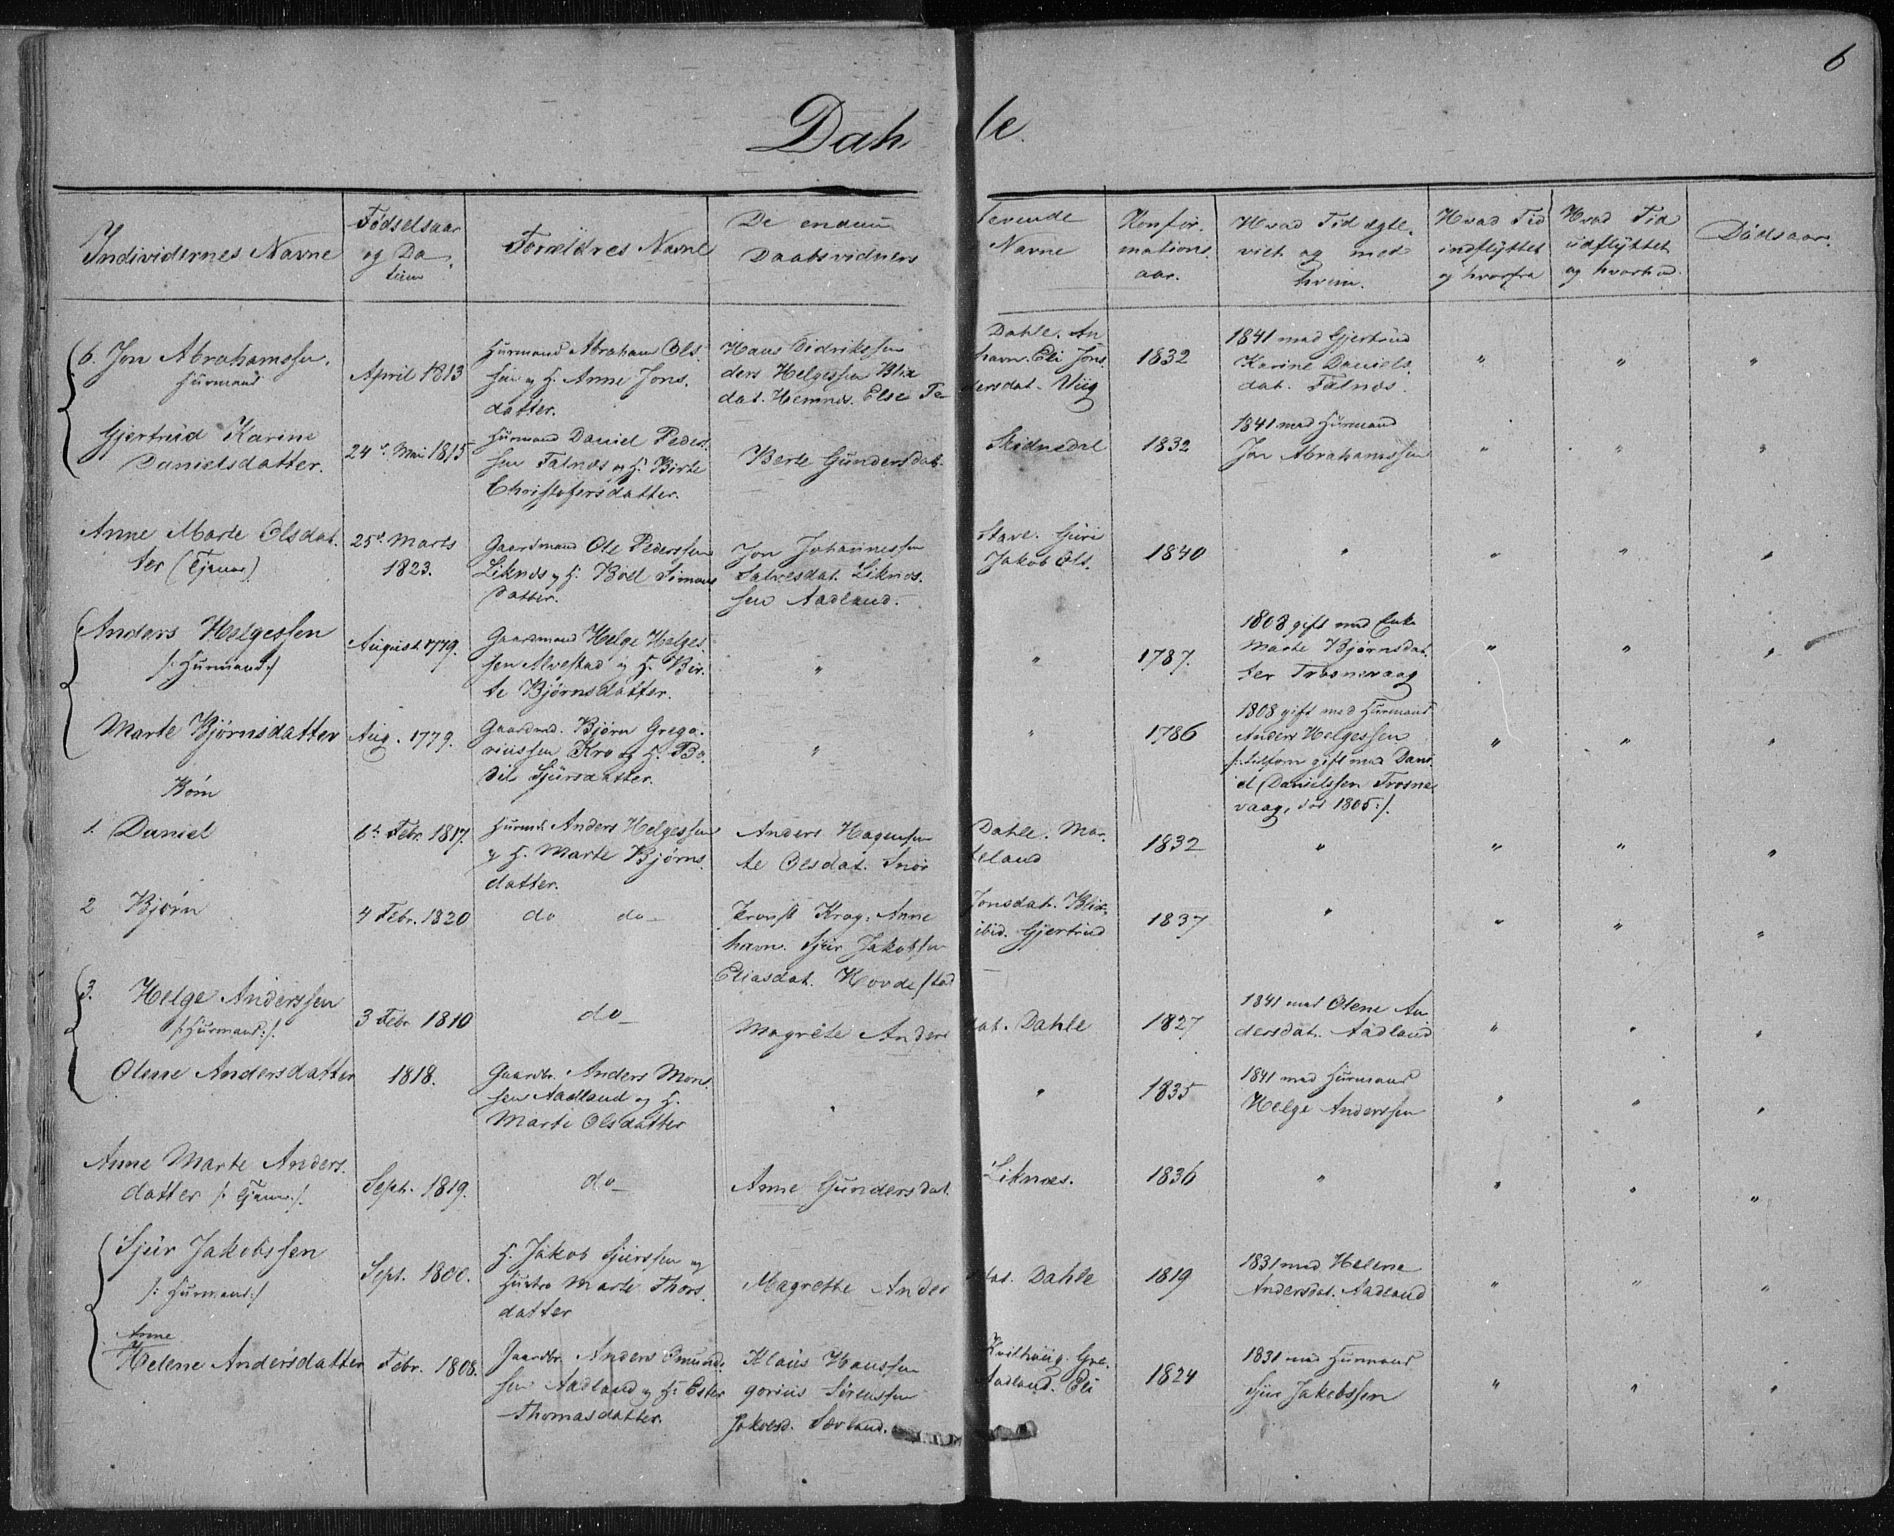 6
Dahle.
Individernes Navne | Fødselsaar og Datum | Forældres Navne | De endnu levende Daabsvidners Navne | Konfirmationsaar. | Hvad Tid ægteviet og med hvem. | Hvad Tid indflyttet og hvorfra | Hvad Tid udflyttet og hvorhen | Dødsaar.
6. Jon Abrahamssen. Huusmand | April 1813 | Huusmand Abraham Olssen og H. Anne Jonsdatter. | Hans Didrikssen Dahle. Anders Helgessen Blixhavn. Eli Jonsdat. Hemnes. Else Dersdat. Viig | 1832 | 1841 med Gjertrud Karine Danielsdat. Falnæs. | " | " | "
Gjertrud Karine Danielsdatter. | 24de Mai 1815 | Huusmand Daniel Pederssen Falnæs og H. Birte Christofersdatter. | Berte Gundersdat. Skidnedal | 1832 | 1841 med Huusmand Jon Abrahamssen | " | " | "
Anne Marte Olsdatter (Tjener) | 25de Marts 1823. | Gaardmand Ole Pederssen Liknæs og H. Boel Simonsdatter. | Jon Johannessen Stave. Guri Salvesdat. Liknæs. Jakob Olssen Aadland. | 1840 | " | " | " | "
Anders Helgessen /: Huusmand :/ | August 1779. | Gaardmand Helge Helgessen Alvestad og H. Birte Bjørnsdatter. | " | 1787. | 1808 gift med Enke Marte Bjørnsdatter Trosnevaag | " | " | "
Marte Bjørnsdatter | Aug. 1779. | Gaardmd. Bjørn Gregoriussen Kro og H. Bodil Sjursdatter. | " | 1786 | 1808 gift med Huusmand Anders Helgessen /: tilforn gift med Daniel Danielssen Trosnevaag, død 1805 :/. | " | " | "
Børn
1. Daniel | 6te Febr. 1817. | Huusmd. Anders Helgessen og H. Marte Bjørnsdatter. | Anders Hagenssen Dahle. Marte Olsdat. Snørteland | 1832 | " | " | " | "
2 Bjørn | 4 Febr. 1820 | do do | Provst Krog. Anne Jonsdat. Blixhavn. Sjur Jakobssen ibid. Gjertrud Eliasdat. Hovdestad | 1837 | " | " | " | "
3. Helge Anderssen /: Huusmand :/. | 3 Febr 1810 | do | Magrete Andersdat. Dahle | 1827 | 1841 med Olene Andersdat. Aadland | " | " | "
Olene Andersdatter | 1818. | Gaardbr. Anders Monssen Aadland og H. Marte Olsdatter | " | 1835 | 1841 med Huusmand Helge Anderssen | " | " | "
Anne Marte Andersdatter /: Tjener :/. | Sept. 1819. | do | Anne Gundersdat. Liknæs. | 1836 | " | " | " | "
Sjur Jakobssen /: Huusmand :/ | Sept. 1800. | H. Jakob Sjurssen og Hustro Marte Thorsdatter | Magrette Andersdat. Dahle | 1819 | 1831 med Helene Andersdat. Aadland | " | " | "
Anne Helene Andersdatter | Febr. 1808. | Gaardbr. Anders Omundssen Aadland og H. Ester Thomasdatter. | Klaus Hanssen Kvilhaug. Gregorius Sørenssen Aadland. Eli Jakobsd. Sævland. | 1824 | 1831 med Huusmand Sjur Jakobssen | " | " | "